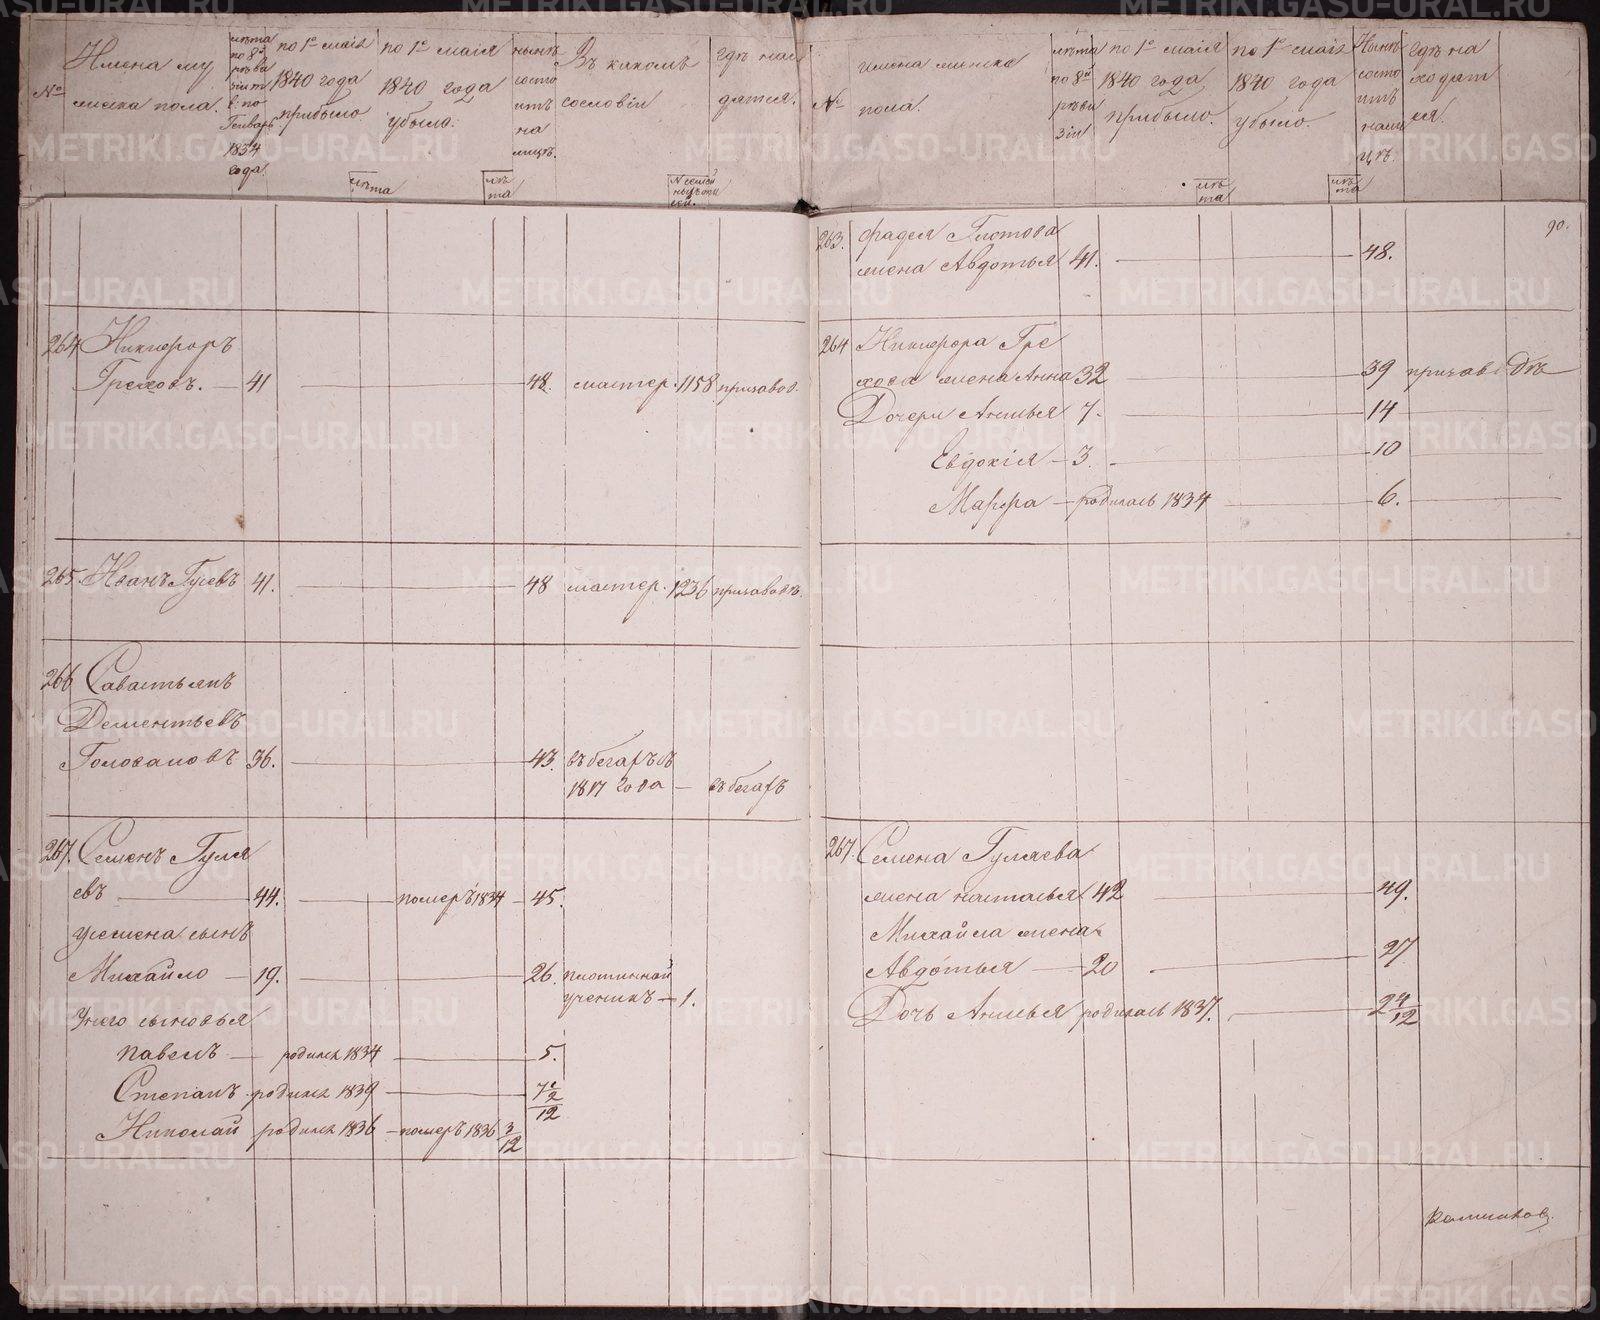 №
Имена му
жеска пола.
лѣта
по 8й
реви
зіи т
е. по
Генварь
1834
года
по 1е маія
1840 года
прибыло
лѣта
по 1е маія
1840 года
убыло.
лѣ
та
нынѣ
состо
итъ
на
лицѣ.
Въ какомъ
сословіи
№ семей
ныхъ спи
ски.
гдѣ нахо
дятся.
264
Никифоръ
Греховъ. — 41 — 48. мастер. 1158 призавод.
265. Иванъ Гуевъ 41. — 48 мастер. 1236 призаводѣ.
266 Савастьянъ
Дементьевъ
Головановъ 36. — 43. въ бегахъ съ
1817 года — въ бегахъ
267. Семенъ Гуля
евъ — 44. — померъ 1834 — 45.
У семена сынъ
Михайло — 19. — 26. плотинной
ученикъ — 1.
У него сыновья
Павелъ — родился 1834 — 5.
Степанъ родился 1839 — 7/12
Николай родился 1836 — померъ 1836 3/12
№
имена женска
пола.
лѣта
по 8й
реви
зіи
по 1е маія
1840 года
прибыло.
лѣ
та
по 1е маія
1840 года
убыло.
лѣ
та
Нынѣ
состо
итъ
нали
цѣ.
гдѣ на
ходят
ся.
90.
263. Фадея Глотова
жена Авдотья 41. — 48.
264 Никифора Гре
хова жена Анна 32 — 39 призаводѣ
Дочери Анисья 7. — 14
Евдокія — 3. — 10
Марфа — родилась 1834 — 6.
267. Семена Гуляева
жена Настасья 42 — 49.
Михайла жена
Авдотья — 20 — 27
Дочь Анисья родилась 1837. — 2 4/12